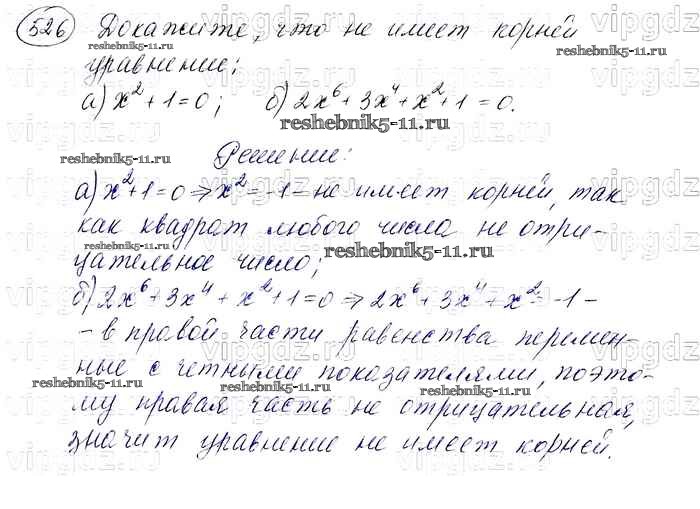 526 Докажите, что не имеет корней
уравнение:
а) x² + 1 = 0; б) 2x⁶ + 3x⁴ + x² + 1 = 0.
Решение:
а) x² + 1 = 0 => x² = -1 - не имеет корней, так
как квадрат любого числа не отри-
цательное число;
б) 2x⁶ + 3x⁴ + x² + 1 = 0 => 2x⁶ + 3x⁴ + x² = -1 -
- в правой части равенства перемен-
ные с четными показателями, поэто-
му правая часть не отрицательная,
значит уравнение не имеет корней.
reshebnik5-11.ru
vipgdz.ru